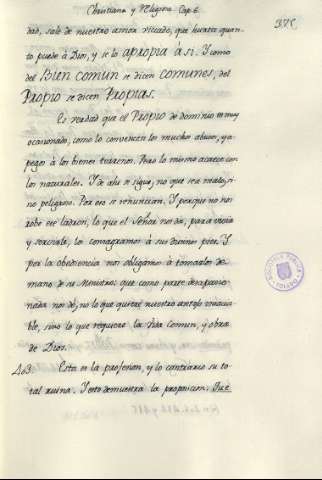 Christiana y Religiosa Cap. 6.
375
dad, sale de nuestro amor viciado, que hurta quan-
to puede à Dios, y se lo apropia à si. Y como
del Bien comun se dicen comunes, del
Propio se dicen Propias.
Es verdad que el Propio de dominio es muy
ocasionado, como lo convencen los muchos abusos, y a-
pegos à los bienes terrenos. Pero lo mismo acaece con
los naturales. Y de ahi se sigue, no que sea malo, si-
no peligroso. Por eso se renuncian. Y porque no nos
robe ese ladron, lo que el Señor nos dà, para uso
y servirle, lo consagramos à sus divinos pies. Y
por la obediencia nos obligamos à tomarlos de
mano de su Ministro, que como parte desapasio-
nada nos dè, no lo que quiere nuestro antojo insacia-
ble, sino lo que requiere la Vida Comun, y obra
de Dios.
403. Esta es la profesion, y lo contrario su to-
tal ruina. Y esto demuestra la proposicion. Fue
BIBLIOTECA PUBLICA